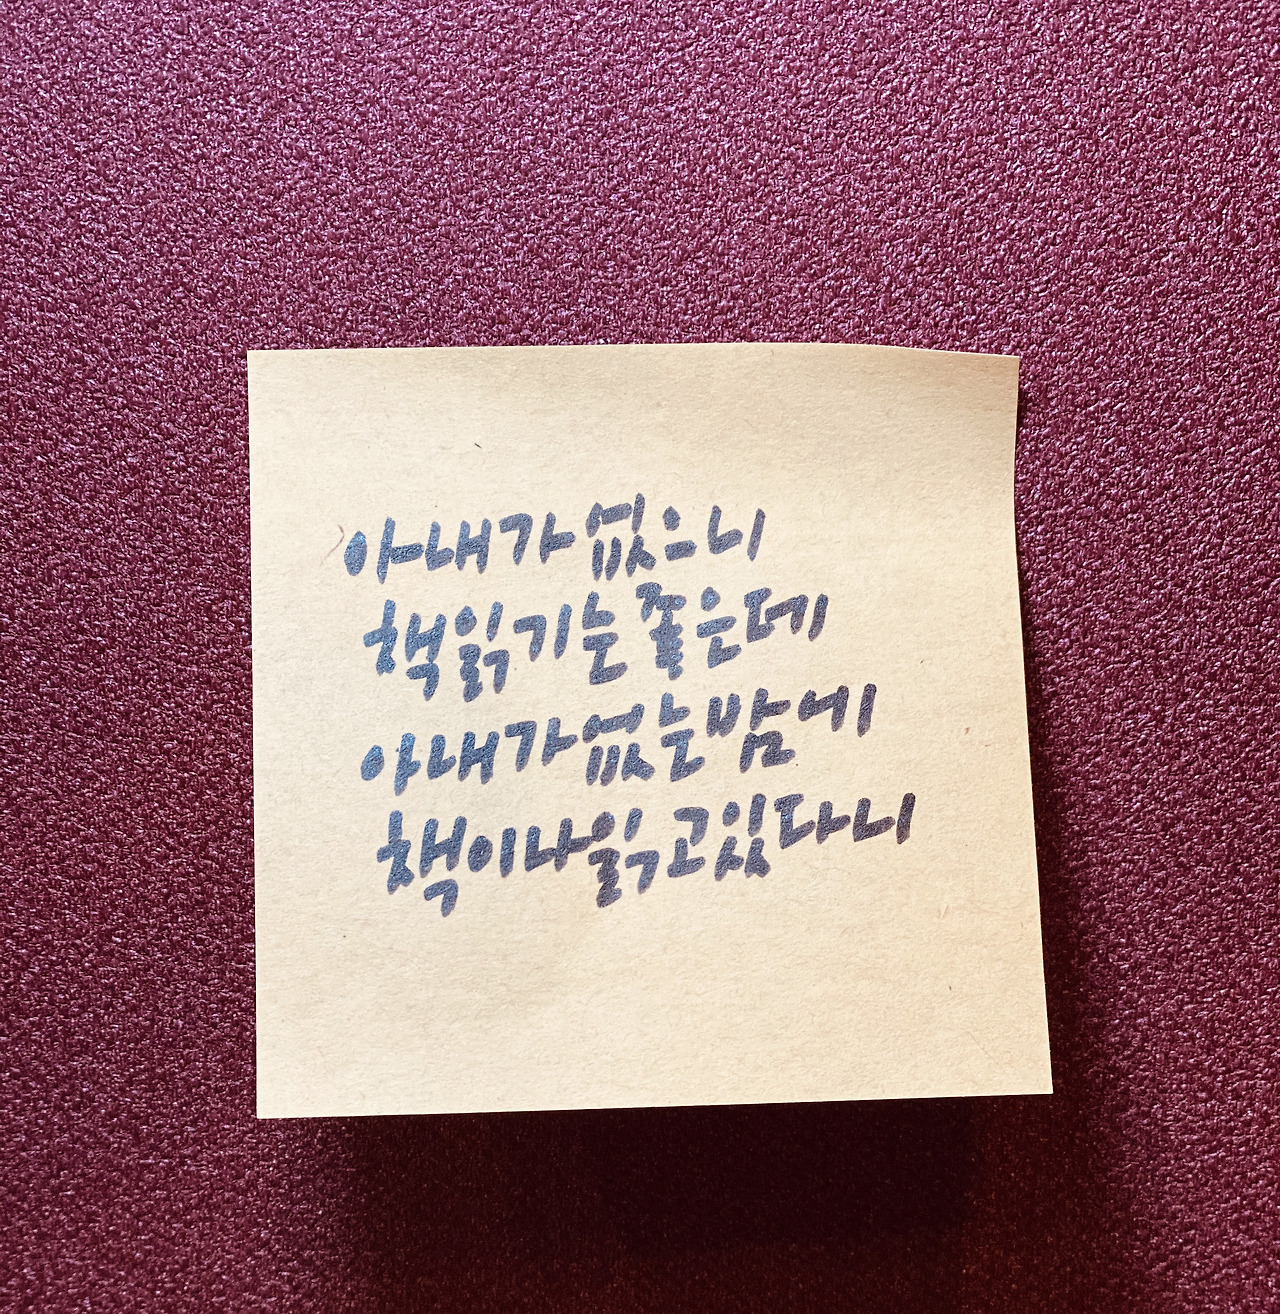 아내가 없으니
책읽기는 좋은데
아내가 없는 밤에
책이나 읽고 있다니